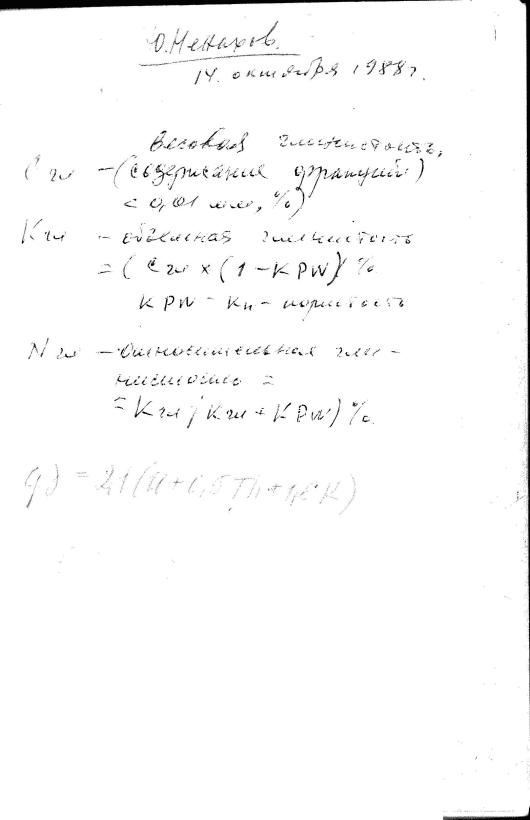 14 октября 1988 г.
Весовая глинистость,
Cгл – (содержание фракций)
< 0,01 мм, %)
Kгл – объемная глинистость
= (Cгл × (1 – KPW) %
KPW – Kп – пористость
Nгл – относительная гли-
нистость =
= Kгл / (Kгл + KPW) %